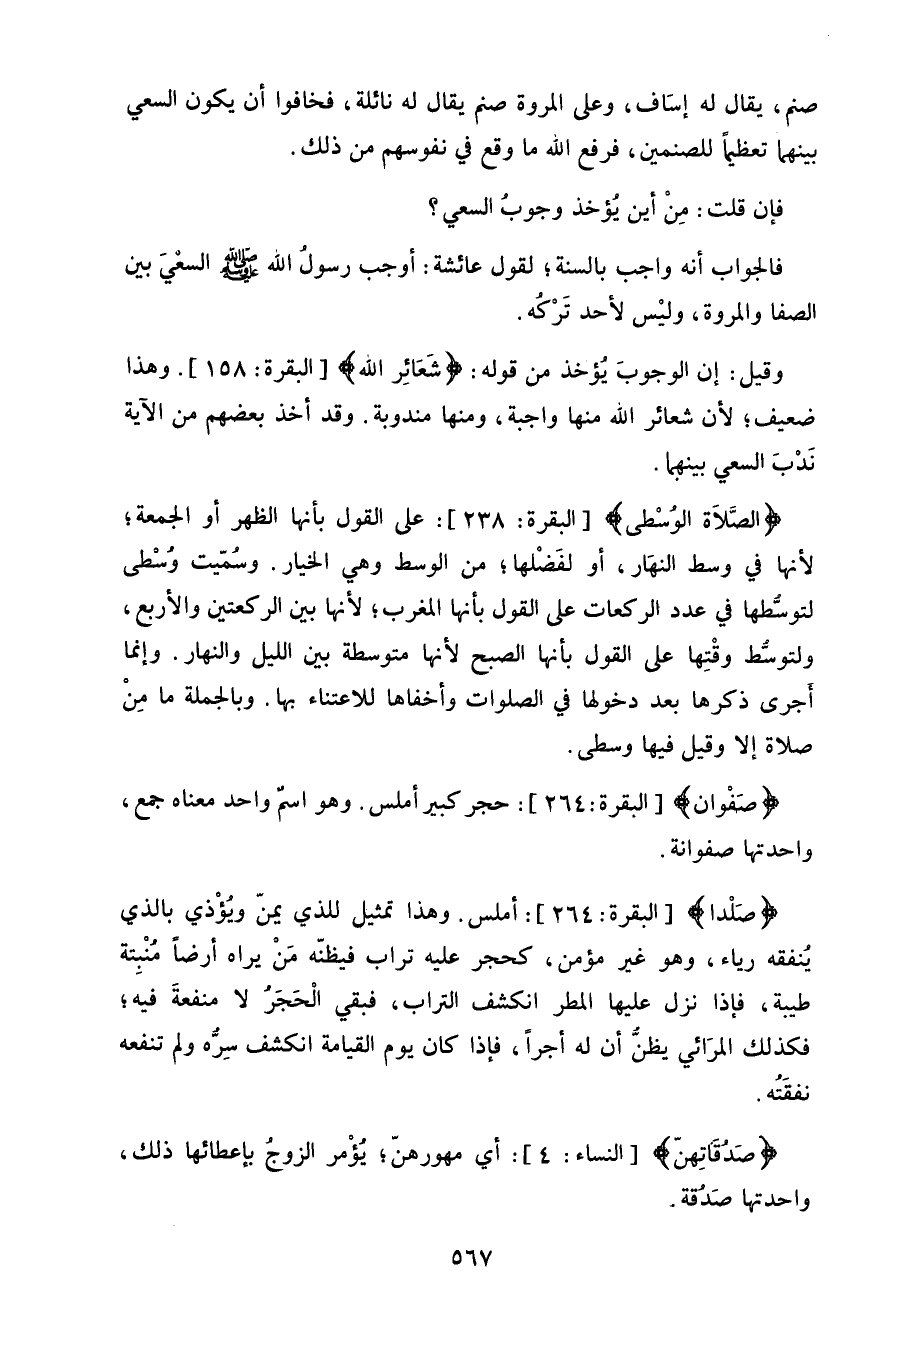 صنم، يقال له إسَاف، وعلى المروة صنم يقال له نائلة، فخافوا أن يكون السعي
بينهما تعظيماً للصنمين، فرفع الله ما وقع في نفوسهم من ذلك.
فإن قلت: مِنْ أين يُؤخذ وجوبُ السعي؟
فالجواب أنه واجب بالسنة؛ لقول عائشة: أوجب رسولُ الله ﷺ السعْيَ بين
الصفا والمروة، وليْس لأحد تَرْكُه.
وقيل: إن الوجوبَ يُؤخذ من قوله: ﴿شَعَائِر الله﴾ [البقرة: ١٥٨]. وهذا
ضعيف؛ لأن شعائر الله منها واجبة، ومنها مندوبة. وقد أخذ بعضهم من الآية
نَدْبَ السعي بينهما.
﴿الصَّلاَة الوُسْطى﴾ [البقرة: ٢٣٨]: على القول بأنها الظهر أو الجمعة؛
لأنها في وسط النهَار، أو لفَضْلها؛ من الوسط وهي الخيار. وسُمّيت وُسْطى
لتوسُّطها في عدد الركعات على القول بأنها المغرب؛ لأنها بين الركعتين والأربع،
ولتوسُّط وقْتِها على القول بأنها الصبح لأنها متوسطة بين الليل والنهار. وإنما
أَجرى ذكرها بعد دخولها في الصلوات وأخفاها للاعتناء بها. وبالجملة ما مِنْ
صلاة إلا وقيل فيها وسطى.
﴿صَفْوان﴾ [البقرة: ٢٦٤]: حجر كبير أملس. وهو اسمٌ واحد معناه جمع،
واحدتها صفوانة.
﴿صَلْدا﴾ [البقرة: ٢٦٤]: أملس. وهذا تمثيل للذي يمنّ ويُؤْذي بالذي
يُنفقه رياء، وهو غير مؤمن، كحجر عليه تراب فيظنّه مَنْ يراه أرضاً مُنْبِتة
طيبة، فإذا نزل عليها المطر انكشف التراب، فبقي الْحَجَرُ لا منفعةَ فيه؛
فكذلك المرَائي يظنُّ أن له أجراً، فإذا كان يوم القيامة انكشف سِرُّه ولم تنفعه
نفقَتُه.
﴿صَدُقَاتِهنّ﴾ [النساء: ٤]: أي مهورهنّ؛ يُؤْمر الزوجُ بإعطائها ذلك،
واحدتها صَدُقة.
٥٦٧